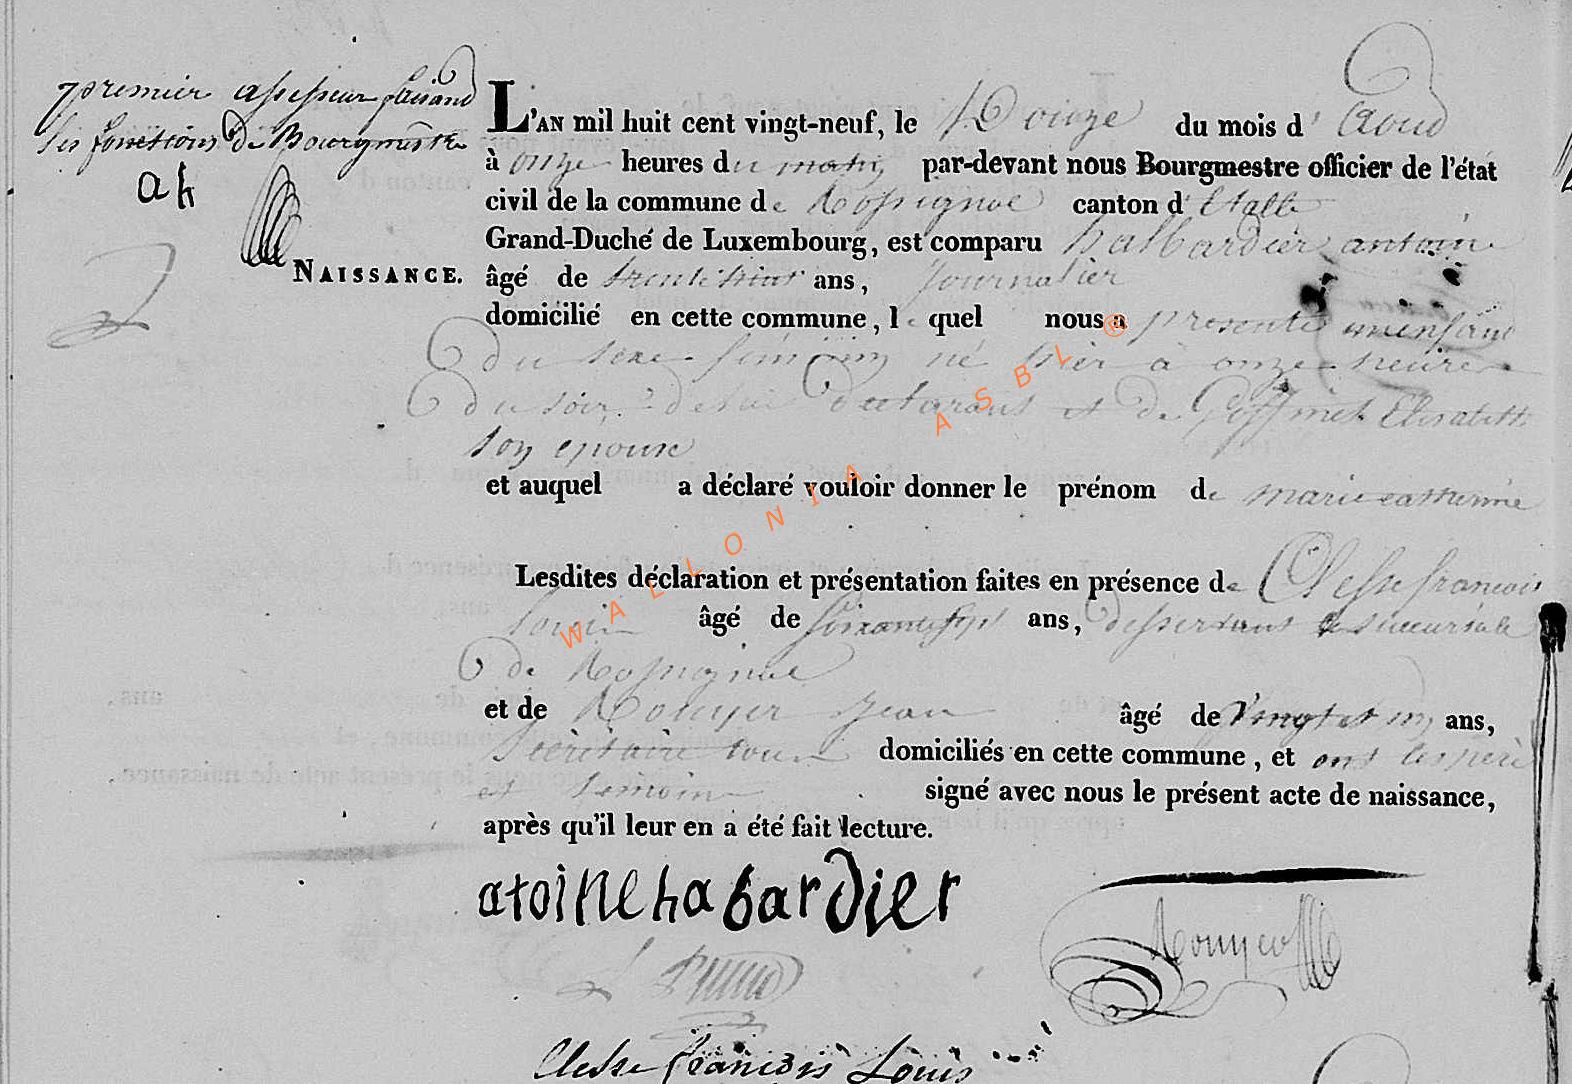 premier assesseur faisant
les fonctions de Bourgmestre
ah
NAISSANCE.
L'AN mil huit cent vingt-neuf, le Douze du mois d' Aoud
à onze heures du matin par-devant nous Bourgmestre officier de l'état
civil de la commune de Rossignol canton d' Etalle
Grand-Duché de Luxembourg, est comparu halbardier antoine
âgé de ans, journalier
domicilié en cette commune, lequel nous a présenté un enfant
du sexe féminin né hier à onze heures
du soir de lui declarant et de Goffinet Elisabeth
son épouse
et auquel a déclaré vouloir donner le prénom de marie catherine
Lesdites déclaration et présentation faites en présence de Clesse francois
louis âgé de soixante sept ans, desservant succursale
de Rossignol
et de Rouyer jean âgé de vingt et un ans,
secrétaire domiciliés en cette commune, et ont les père
et temoin signé avec nous le présent acte de naissance,
après qu'il leur en a été fait lecture.
atoine habardier
Rouyer
Clesse françois Louis
WALLONIA ASBL ®